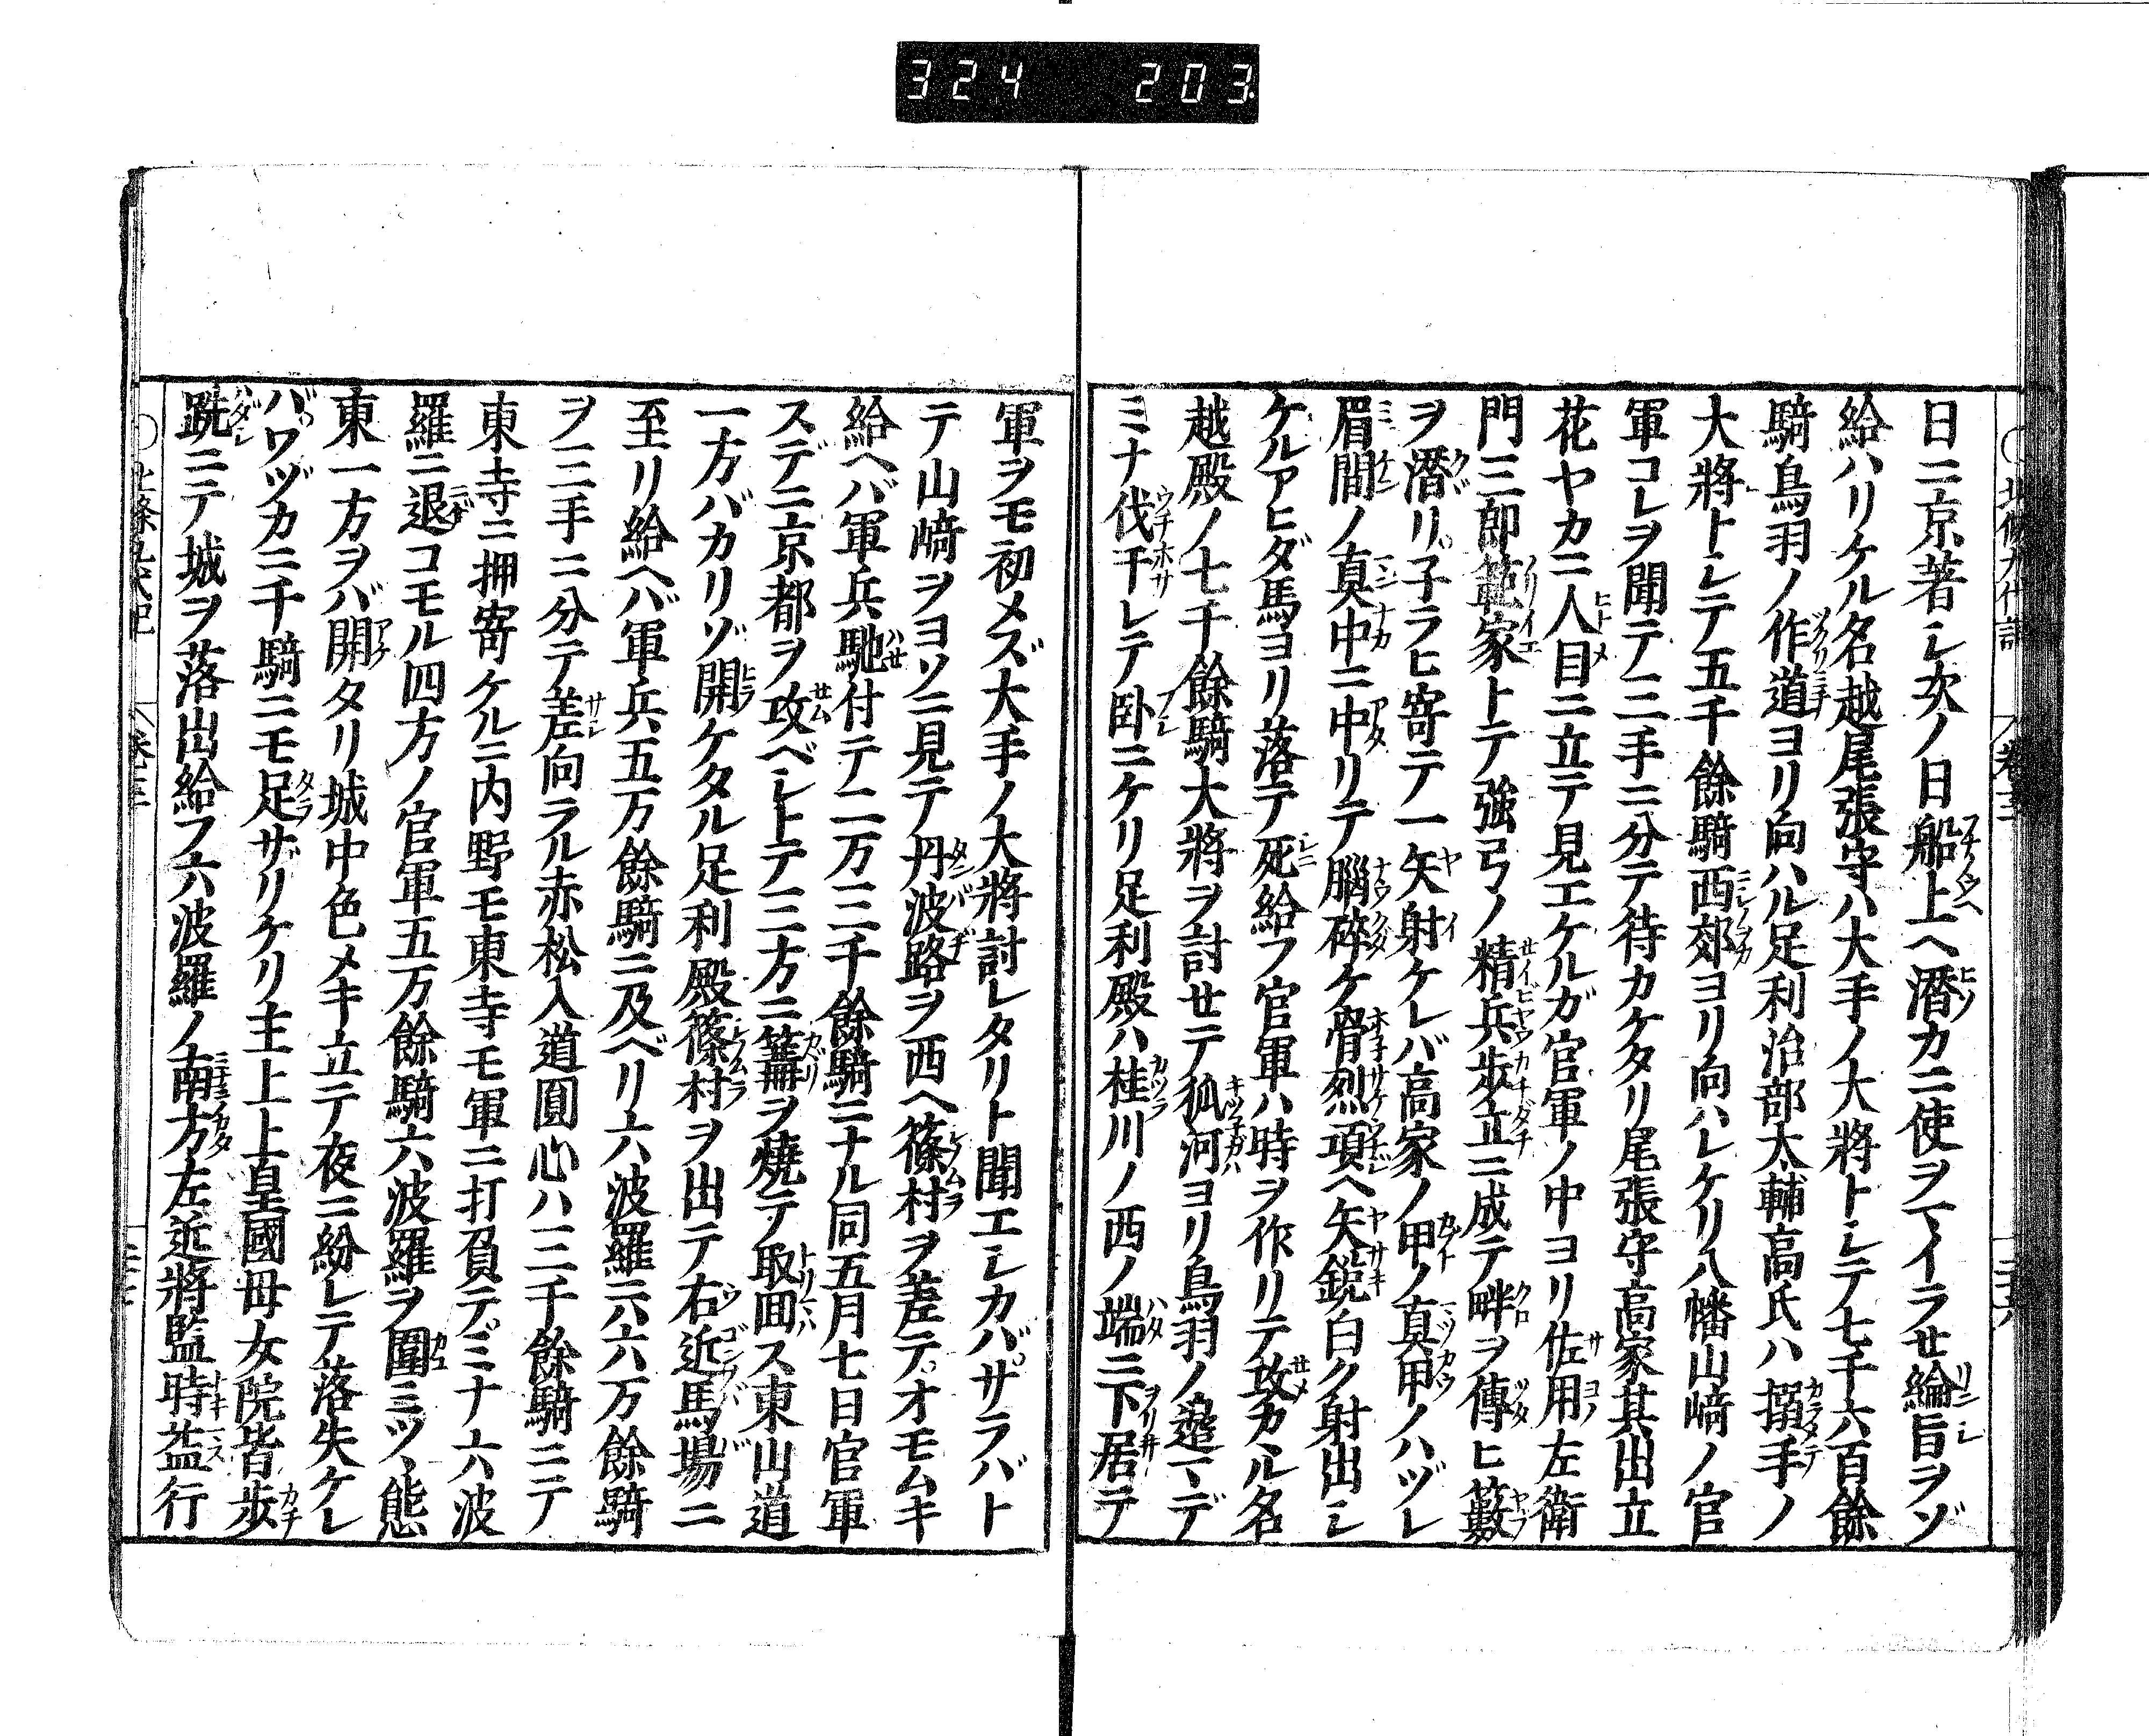 324 203
日ニ京著シ次ノ日船上ヘ潜カニ使ヲマイラセ綸旨ヲゾ
給ハリケル名越尾張守ハ大手ノ大將トシテ七千六百餘
騎鳥羽ノ作道ヨリ向ハル足利治部太輔高氏ハ搦手ノ
大將トシテ五千餘騎西郊ヨリ向ハレケリ八幡山﨑ノ官
軍コレヲ聞テ三手ニ分テ待カケタリ尾張守高家其出立
花ヤカニ人目ニ立テ見エケルガ官軍ノ中ヨリ佐用左衛
門三郎範家トテ強弓ノ精兵歩立ニ成テ畔ヲ傳ヒ藪
ヲ潜リ子ラヒ寄テ一矢射ケレバ高家ノ甲ノ真甲ノハヅレ
眉間ノ真中ニ中リテ腦碎ケ骨烈項ヘ矢鋭白ク射出シ
ケルアヒダ馬ヨリ落テ死給フ官軍ハ時ヲ作リテ攻カヽル名
越殿ノ七千餘騎大將ヲ討セテ狐河ヨリ鳥羽ノ邊マデ
ミナ伐干レテ卧ニケリ足利殿ハ桂川ノ西ノ端ニ下居テ
軍ヲモ初メズ大手ノ大將討レタリト聞エシカバサラバト
テ山﨑ヲヨソニ見テ丹波路ヲ西ヘ篠村ヲ差テオモムキ
給ヘバ軍兵馳付テ二万三千餘騎ニナル同五月七日官軍
スデニ京都ヲ攻ベシトテ三方ニ篝ヲ燒テ取囲ス東山道
一方バカリゾ開ケタル足利殿篠村ヲ出テ右近馬場ニ
至リ給ヘバ軍兵五万餘騎ニ及ベリ六波羅ニ六万餘騎
ヲ三手ニ分テ差向ラル赤松入道圓心ハ三千餘騎ニテ
東寺ニ押寄ケルニ内野モ東寺モ軍ニ打負テミナ六波
羅ニ退コモル四方ノ官軍五万餘騎六波羅ヲ圍ミツヽ態
東一方ヲバ開タリ城中色メキ立テ夜ニ紛レテ落失ケレ
バワヅカニ千騎ニモ足ザリケリ主上上皇國母女院皆歩
跣ニテ城ヲ落出給フ六波羅ノ南方左近將監時益行